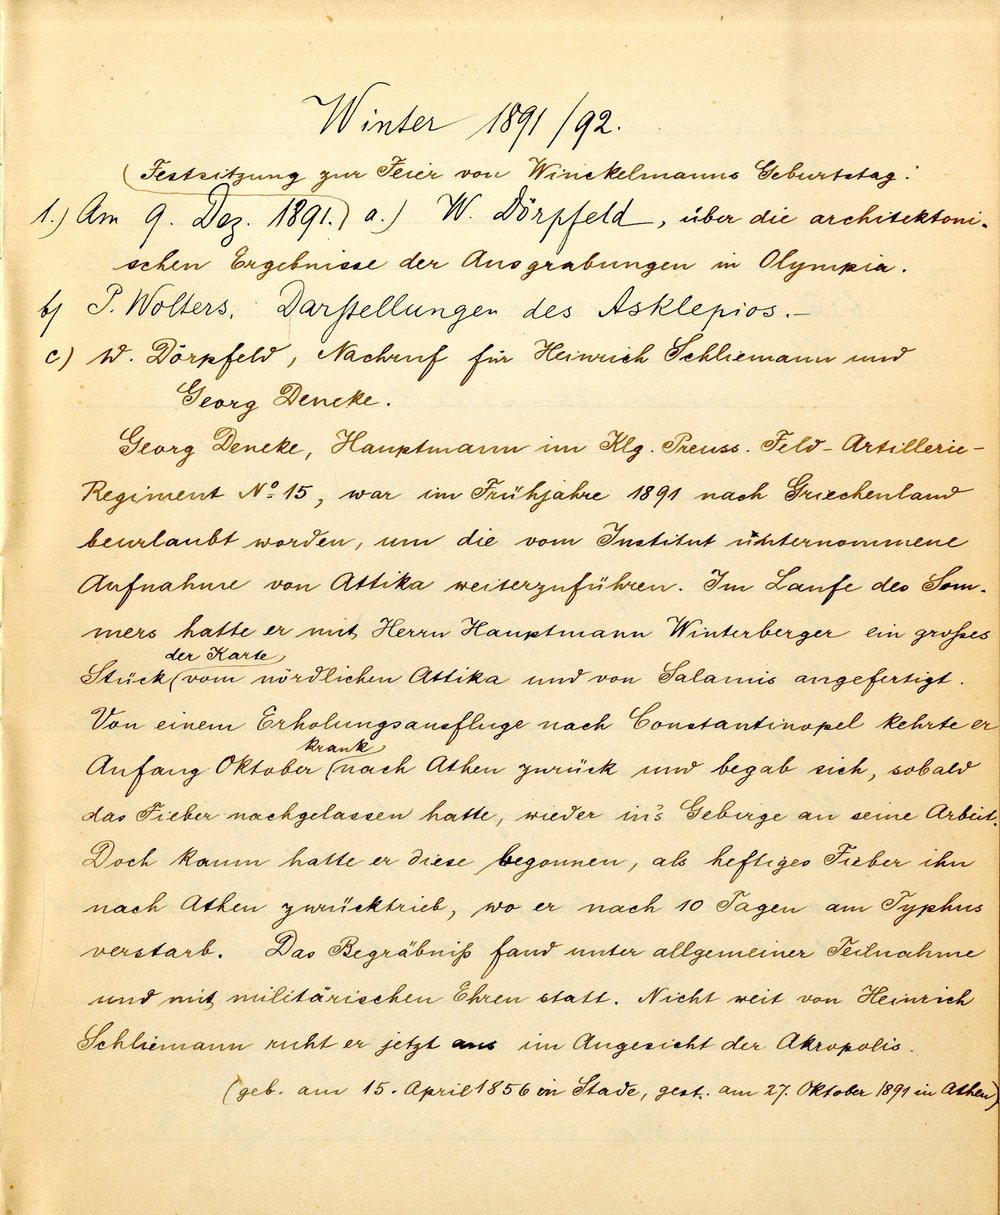 Winter 1891/92.
(Festsitzung zur Feier von Winckelmanns Geburtstag:
1.) Am 9. Dez. 1891.) a.) W. Dörpfeld, über die architektoni-
schen Ergebnisse der Ausgrabungen in Olympia.
b) P. Wolters, Darstellungen des Asklepios.—
c) W. Dörpfeld, Nachruf für Heinrich Schliemann und
Georg Deneke.
Georg Deneke, Hauptmann im Klg. Preuss. Feld-Artillerie-
Regiment No 15, war im Frühjahre 1891 nach Griechenland
beurlaubt worden, um die vom Institut unternommene
Aufnahme von Attika weiterzuführen. Im Laufe des Som-
mers hatte er mit Herrn Hauptmann Winterberger ein großes
der Karte
Stück (vom nördlichen Attika und von Salamis angefertigt.
Von einem Erholungsausfluge nach Constantinopel kehrte er
krank
Anfang Oktober (nach Athen zurück und begab sich, sobald
das Fieber nachgelassen hatte, wieder in's Gebirge an seine Arbeit.
Doch kaum hatte er diese begonnen, als heftiges Fieber ihn
nach Athen zurücktrieb, wo er nach 10 Tagen am Typhus
verstarb. Das Begräbniß fand unter allgemeiner Teilnahme
und mit militärischen Ehren statt. Nicht weit von Heinrich
Schliemann ruht er jetzt im Angesicht der Akropolis.
(geb. am 15. April 1856 in Stade, gest. am 27. Oktober 1891 in Athen)